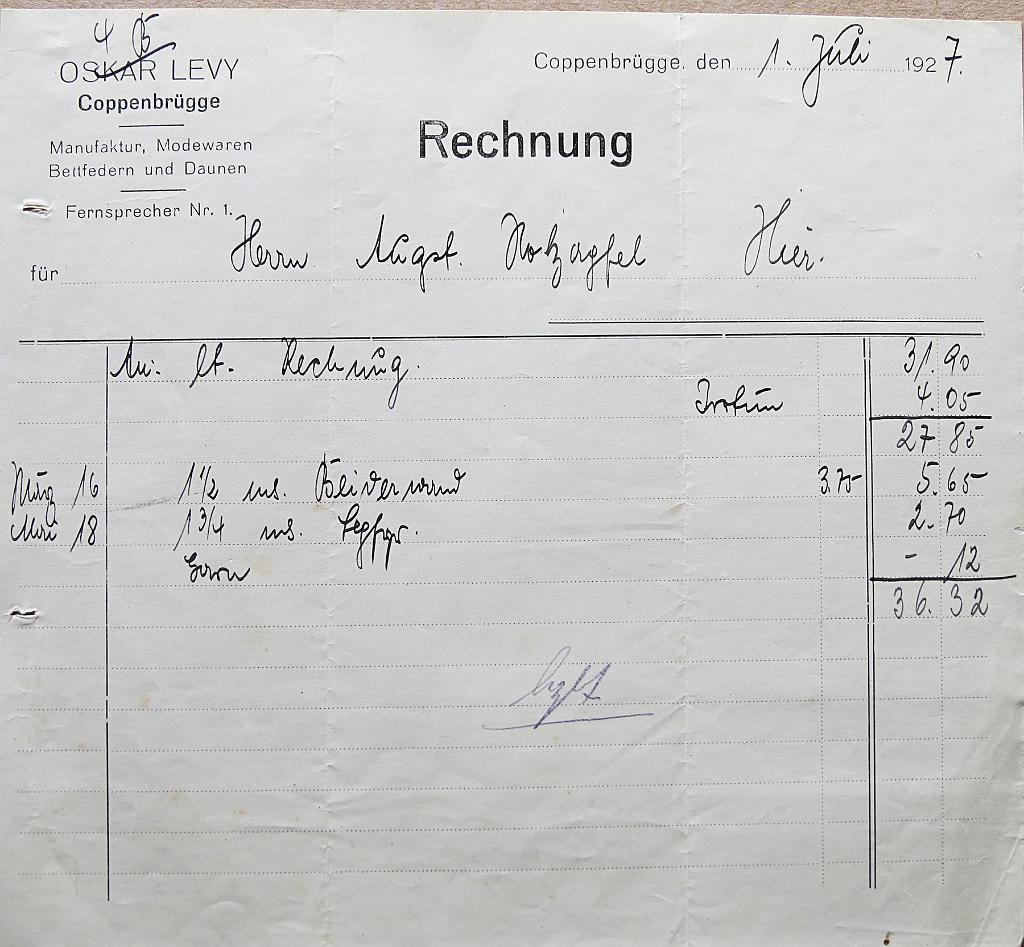 OSKAR LEVY
Coppenbrügge
Manufaktur, Modewaren
Bettfedern und Daunen
Fernsprecher Nr. 1.
Coppenbrügge, den 1. Juli 1927.
Rechnung
für Herrn Augst. Holzapfel Hier.
An lt. Rechnung. 31.90
Irrtum 4.05
27 85
März 16 1 1/2 m. Beiderwand 3.75 5.65
Mai 18 1 3/4 m. 2.70
Garn - 12
36.32
bezlt